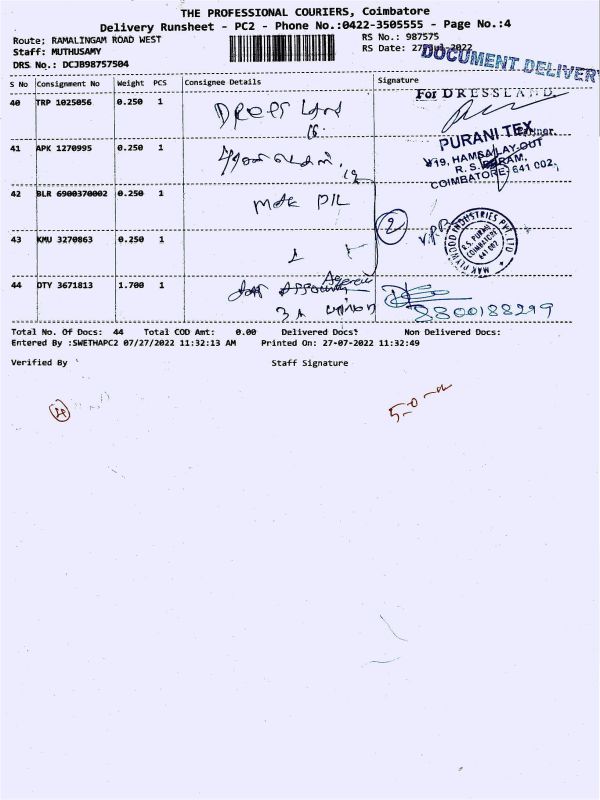 THE PROFESSIONAL COURIERS, Coimbatore
Delivery Runsheet - PC2 - Phone No.:0422-3505555 - Page No.:4
Route; RAMALINGAM ROAD WEST
RS No.: 987575
Staff: MUTHUSAMY
RS Date: 27 Jul 2022
DOCUMENT DELIVER
DRS No.: DCJB98757504
S No Consignment No Weight PCS Consignee Details Signature
40 TRP 1025056 0.250 1
For DRESSLAND
41 APK 1270995 0.250 1
PURANI TEX
#19, HAMSA LAY-OUT
R. S. PURAM,
COIMBATORE- 641 002.
42 BLR 6900370002 0.250 1 Mak PIL
2
43 KMU 3270863 0.250 1
MAK PLYWOOD INDUSTRIES PVT. LTD
R.S. PURAM
COIMBATORE
641 002
44 DTY 3671813 1.700 1
8800188299
Total No. Of Docs: 44 Total COD Amt: 0.00 Delivered Docs: Non Delivered Docs:
Entered By :SWETHAPC2 07/27/2022 11:32:13 AM Printed On: 27-07-2022 11:32:49
Verified By Staff Signature